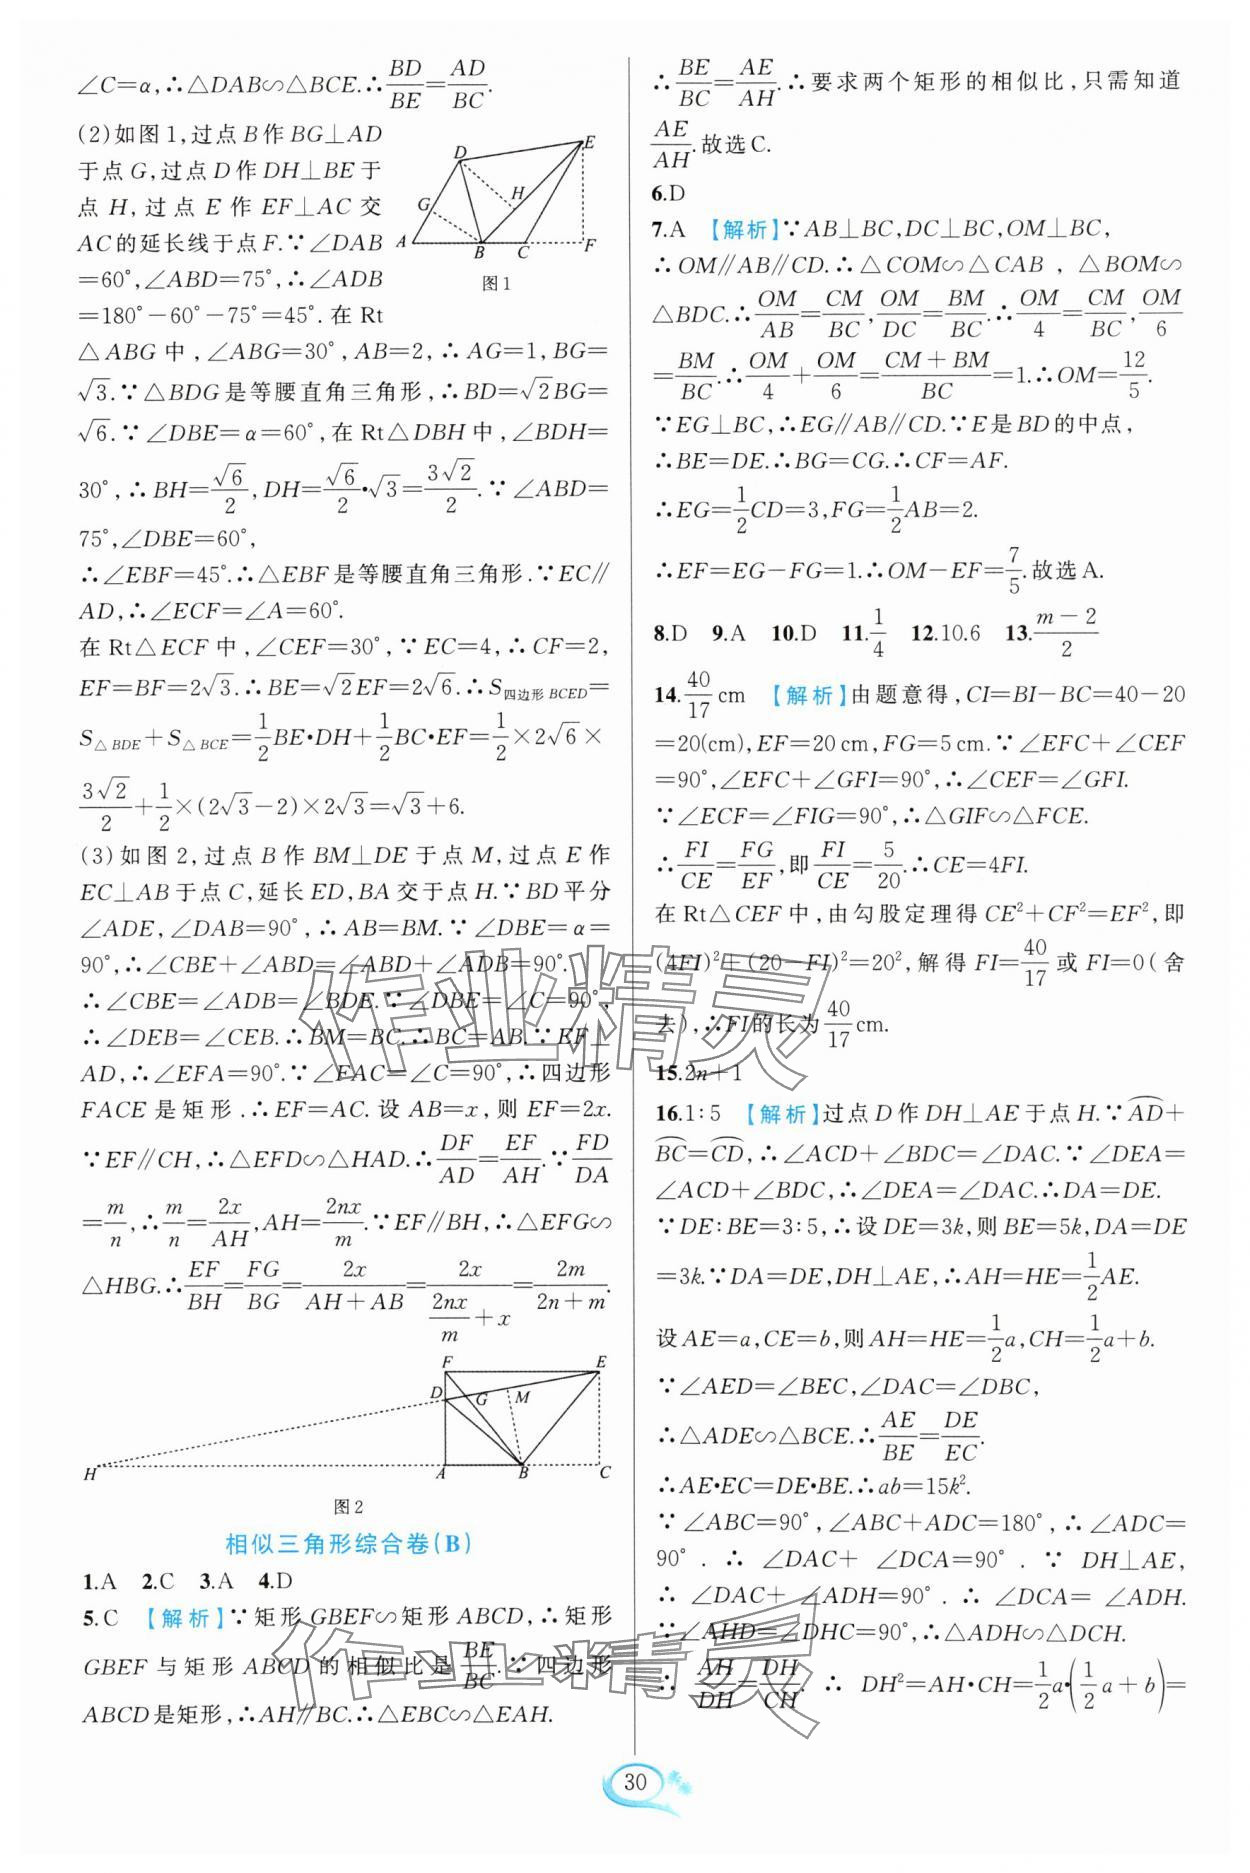 ∠C=α,∴△DAB∽△BCE.∴BD/BE=AD/BC.
(2)如图1,过点B作BG⊥AD
于点G,过点D作DH⊥BE于
点H,过点E作EF⊥AC交
AC的延长线于点F.∵∠DAB
=60°,∠ABD=75°,∴∠ADB
=180°-60°-75°=45°.在Rt
△ABG中,∠ABG=30°,AB=2,∴AG=1,BG=
√3.∵△BDG是等腰直角三角形,∴BD=√2BG=
√6.∵∠DBE=α=60°,在Rt△DBH中,∠BDH=
30°,∴BH=√6/2,DH=√6/2·√3=3√2/2.∵∠ABD=
75°,∠DBE=60°,
∴∠EBF=45°.∴△EBF是等腰直角三角形.∵EC∥
AD,∴∠ECF=∠A=60°.
在Rt△ECF中,∠CEF=30°,∵EC=4,∴CF=2,
EF=BF=2√3.∴BE=√2EF=2√6.∴S四边形BCED=
S△BDE+S△BCE=1/2BE·DH+1/2BC·EF=1/2×2√6×
3√2/2+1/2×(2√3-2)×2√3=√3+6.
(3)如图2,过点B作BM⊥DE于点M,过点E作
EC⊥AB于点C,延长ED,BA交于点H.∵BD平分
∠ADE,∠DAB=90°,∴AB=BM.∵∠DBE=α=
90°,∴∠CBE+∠ABD=∠ABD+∠ADB=90°.
∴∠CBE=∠ADB=∠BDE.∵∠DBE=∠C=90°,
∴∠DEB=∠CEB.∴BM=BC.∴BC=AB.∵EF⊥
AD,∴∠EFA=90°.∵∠EAC=∠C=90°,∴四边形
FACE是矩形.∴EF=AC.设AB=x,则EF=2x.
∵EF∥CH,∴△EFD∽△HAD.∴DF/AD=EF/AH.∵FD/DA
=m/n,∴m/n=2x/AH,AH=2nx/m.∵EF∥BH,∴△EFG∽
△HBG.∴EF/BH=FG/BG=2x/(AH+AB)=2x/(2nx/m+x)=2m/(2n+m).
A B C D E F G H
图1
A B C D E F G H M
图2
相似三角形综合卷(B)
1.A 2.C 3.A 4.D
5.C 【解析】∵矩形GBEF∽矩形ABCD,∴矩形
GBEF与矩形ABCD的相似比是BE/BC.∵四边形
ABCD是矩形,∴AH∥BC.∴△EBC∽△EAH.
∴BE/BC=AE/AH.∴要求两个矩形的相似比,只需知道
AE/AH.故选C.
6.D
7.A 【解析】∵AB⊥BC,DC⊥BC,OM⊥BC,
∴OM∥AB∥CD.∴△COM∽△CAB,△BOM∽
△BDC.∴OM/AB=CM/BC,OM/DC=BM/BC.∴OM/4=CM/BC,OM/6
=BM/BC.∴OM/4+OM/6=(CM+BM)/BC=1.∴OM=12/5.
∵EG⊥BC,∴EG∥AB∥CD.∵E是BD的中点,
∴BE=DE.∴BG=CG.∴CF=AF.
∴EG=1/2CD=3,FG=1/2AB=2.
∴EF=EG-FG=1.∴OM-EF=7/5.故选A.
8.D 9.A 10.D 11.1/4 12.10.6 13.(m-2)/2
14.40/17 cm 【解析】由题意得,CI=BI-BC=40-20
=20(cm),EF=20 cm,FG=5 cm.∵∠EFC+∠CEF
=90°,∠EFC+∠GFI=90°,∴∠CEF=∠GFI.
∵∠ECF=∠FIG=90°,∴△GIF∽△FCE.
∴FI/CE=FG/EF,即FI/CE=5/20.∴CE=4FI.
在Rt△CEF中,由勾股定理得CE²+CF²=EF²,即
(4FI)²+(20-FI)²=20²,解得FI=40/17或FI=0(舍
去),∴FI的长为40/17 cm.
15.2n+1
16.1∶5 【解析】过点D作DH⊥AE于点H.∵⌒AD+
⌒BC=⌒CD,∴∠ACD+∠BDC=∠DAC.∵∠DEA=
∠ACD+∠BDC,∴∠DEA=∠DAC.∴DA=DE.
∵DE∶BE=3∶5,∴设DE=3k,则BE=5k,DA=DE
=3k.∵DA=DE,DH⊥AE,∴AH=HE=1/2AE.
设AE=a,CE=b,则AH=HE=1/2a,CH=1/2a+b.
∵∠AED=∠BEC,∠DAC=∠DBC,
∴△ADE∽△BCE.∴AE/BE=DE/EC.
∴AE·EC=DE·BE.∴ab=15k².
∵∠ABC=90°,∠ABC+ADC=180°,∴∠ADC=
90°.∴∠DAC+∠DCA=90°.∵DH⊥AE,
∴∠DAC+∠ADH=90°.∴∠DCA=∠ADH.
∵∠AHD=∠DHC=90°,∴△ADH∽△DCH.
∴AH/DH=DH/CH.∴DH²=AH·CH=1/2a·(1/2a+b)=
30
作业精灵
作业精灵